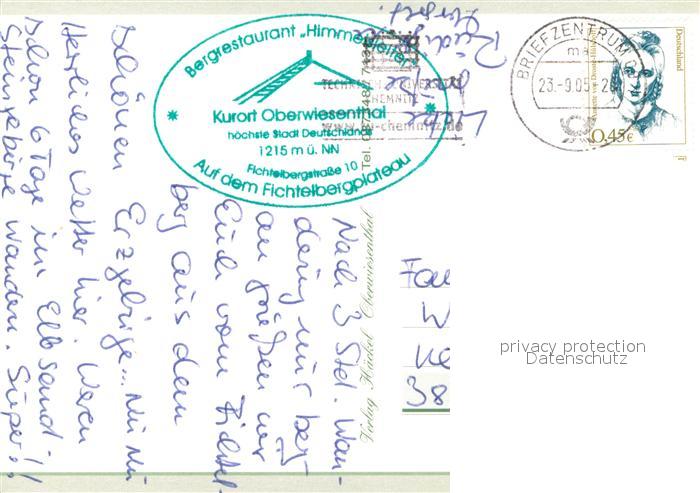 Nach 3 Std. Wan-
derung nur berg
an grüßen wir
Euch vom Fichtel-
berg aus dem
schönen Erzgebirge...
Herrliches Wetter hier. Waren
schon 6 Tage im Elbsand-
steingebirge wandern. Super!!
Liebe
Bergrestaurant „Himmelsleiter"
Kurort Oberwiesenthal
höchste Stadt Deutschlands
1215 m ü. NN
Fichtelbergstraße 10
Auf dem Fichtelbergplateau
TECHNISCHE UNIVERSITÄT
CHEMNITZ
www.tu-chemnitz.de
BRIEFZENTRUM 0
ma
23.-9.05
Deutschland
0.45€
Verlag Härtel Oberwiesenthal
Fa
W
Ke
38
privacy protection
Datenschutz